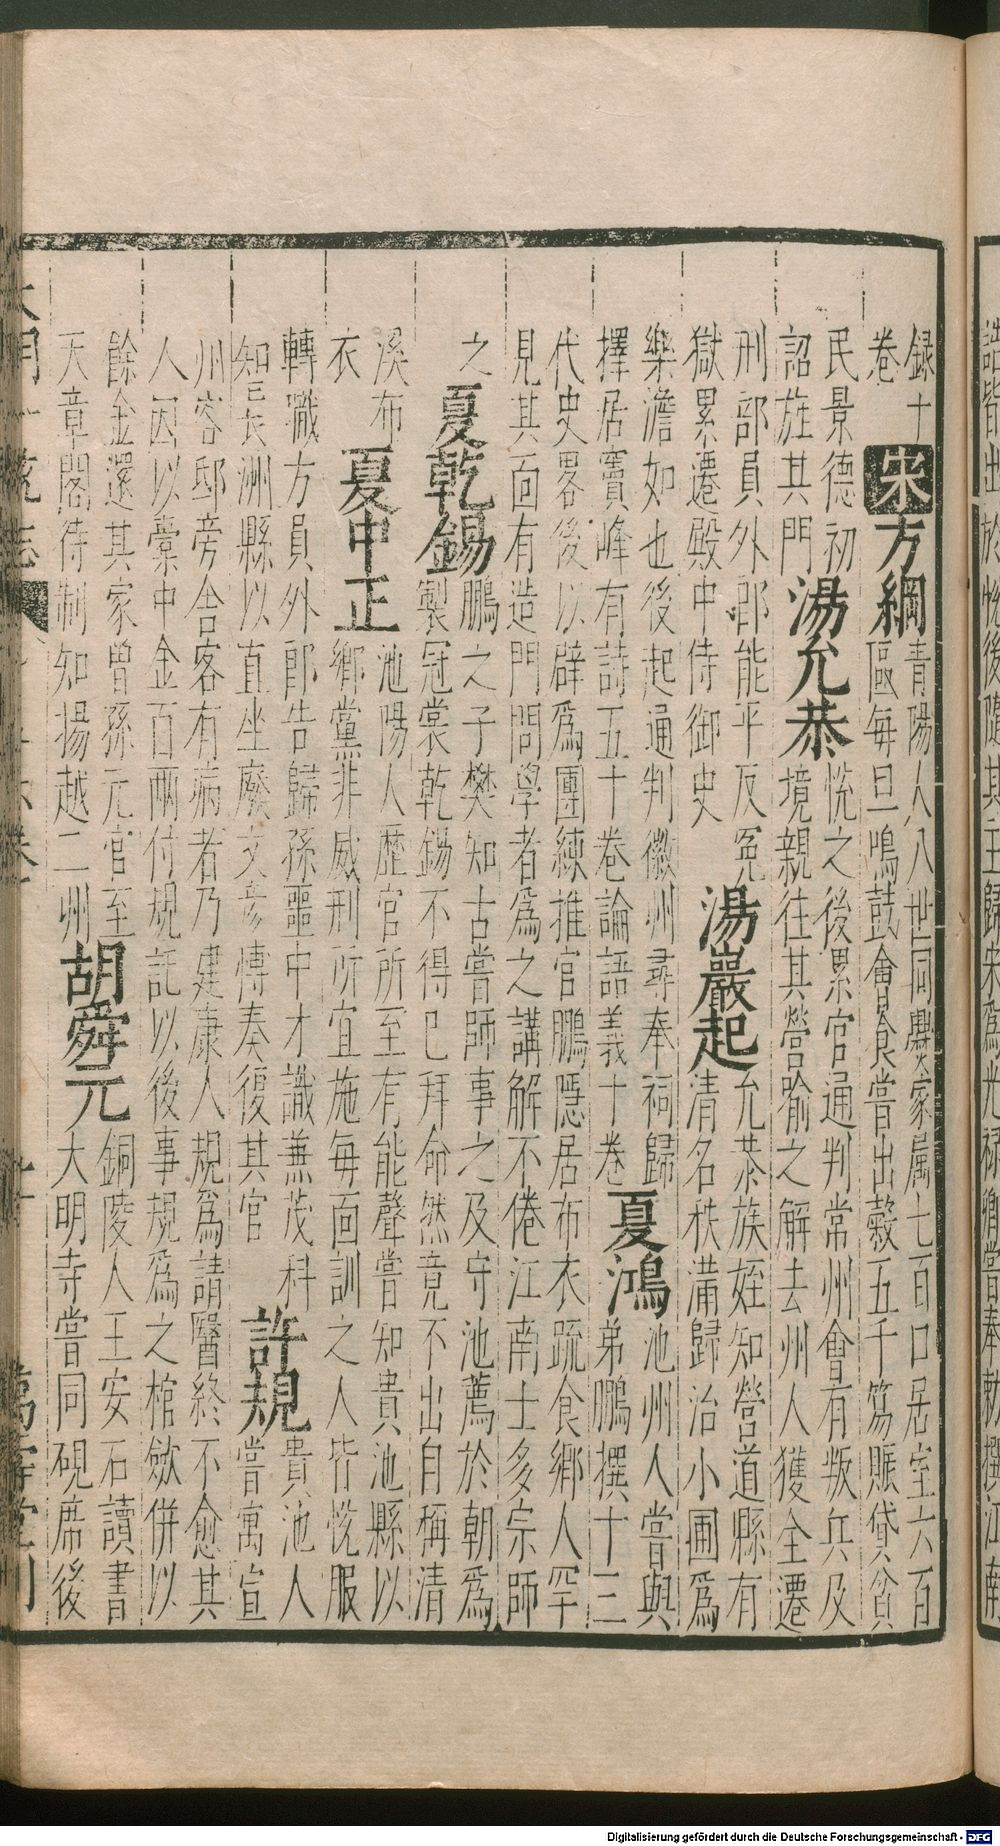 録十
卷
宋
方綱
青陽人八世同爨家屬七百口居室六百
區每旦鳴鼓會食嘗出穀五千笏賑貸貧
民景德初
詔旌其門
湯允恭
悅之後累官通判常州會有叛兵及
境親往其營喻之解去州人獲全遷
刑部員外郎能平反冤
獄累遷殿中侍御史
湯巖起
允恭族姪知營道縣有
清名秩滿歸治小圃爲
樂澹如也後起通判徽州尋奉祠歸
擇居竇峰有詩五十卷論語義十卷
夏鴻
池州人嘗與
弟鵬撰十三
代史畧後以辟爲團練推官鵬隱居布衣疏食鄉人罕
見其面有造門問學者爲之講解不倦江南士多宗師
之
夏乾錫
鵬之子樊知古嘗師事之及守池薦於朝爲
製冠裳乾錫不得已拜命然竟不出自稱清
溪布
衣
夏中正
池陽人歷官所至有能聲嘗知貴池縣以
鄉黨非威刑所宜施每面訓之人皆悅服
轉職方員外郎告歸孫噩中才識兼茂科
知長洲縣以直坐廢文彥博奏復其官
許規
貴池人
嘗寓宣
州客邸旁舍客有病者乃建康人規爲請醫終不愈其
人因以橐中金百兩付規託以後事規爲之棺斂併以
餘金還其家曾孫元官至
天章閣待制知揚越二州
胡舜元
銅陵人王安石讀書
大明寺嘗同硯席後
大明一統志
萬壽堂刊